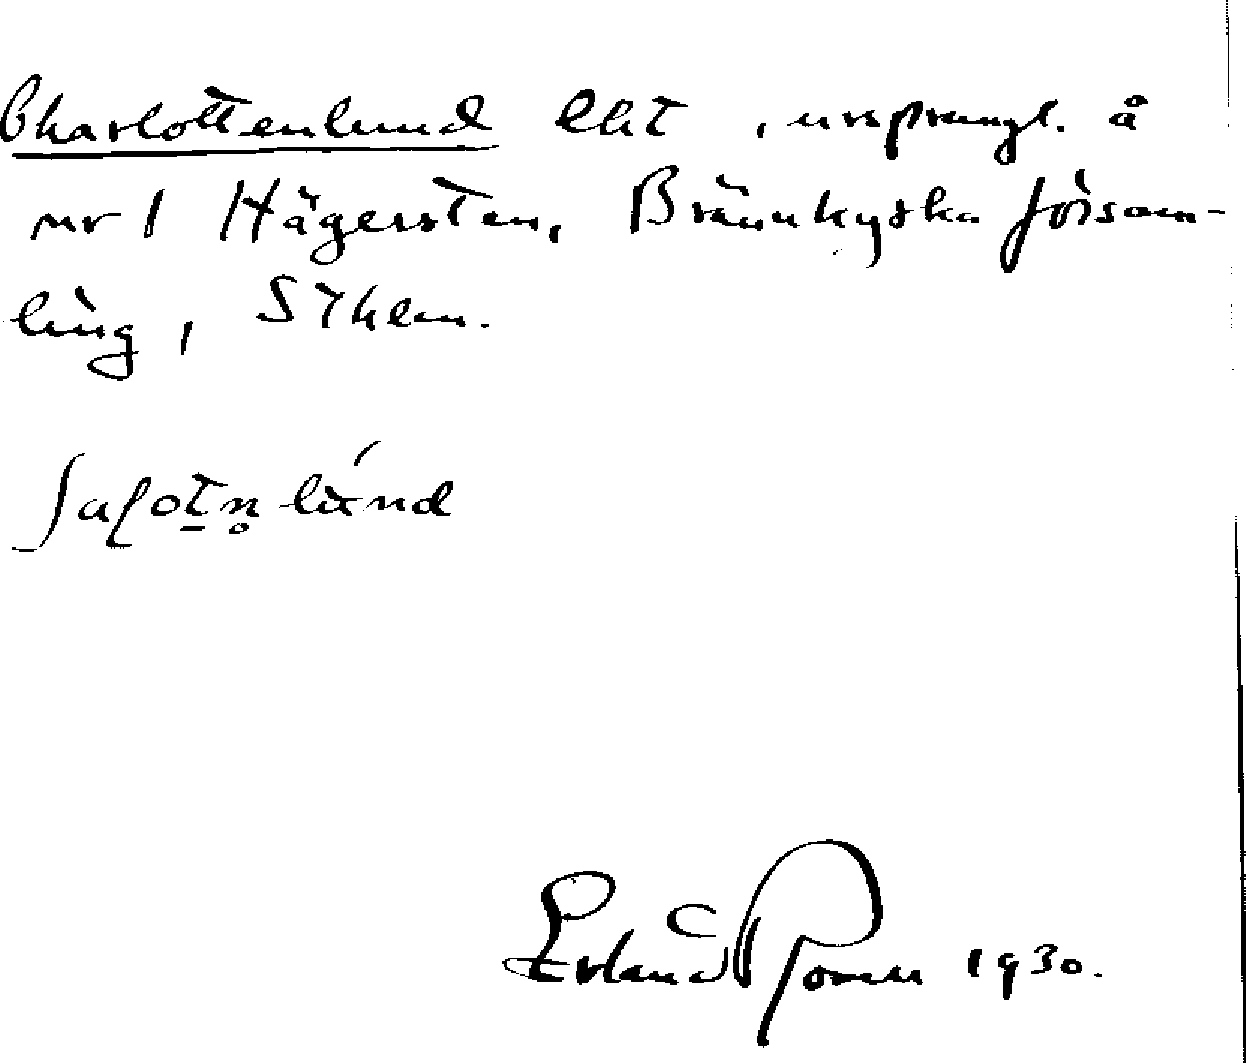 Charlottenlund lht, ursprungl. å
nr 1 Hägersten, Brännkyrka försam-
ling, Sthlm.
ʃaɭot̠n̥lúnd
Erland Rosen 1930.